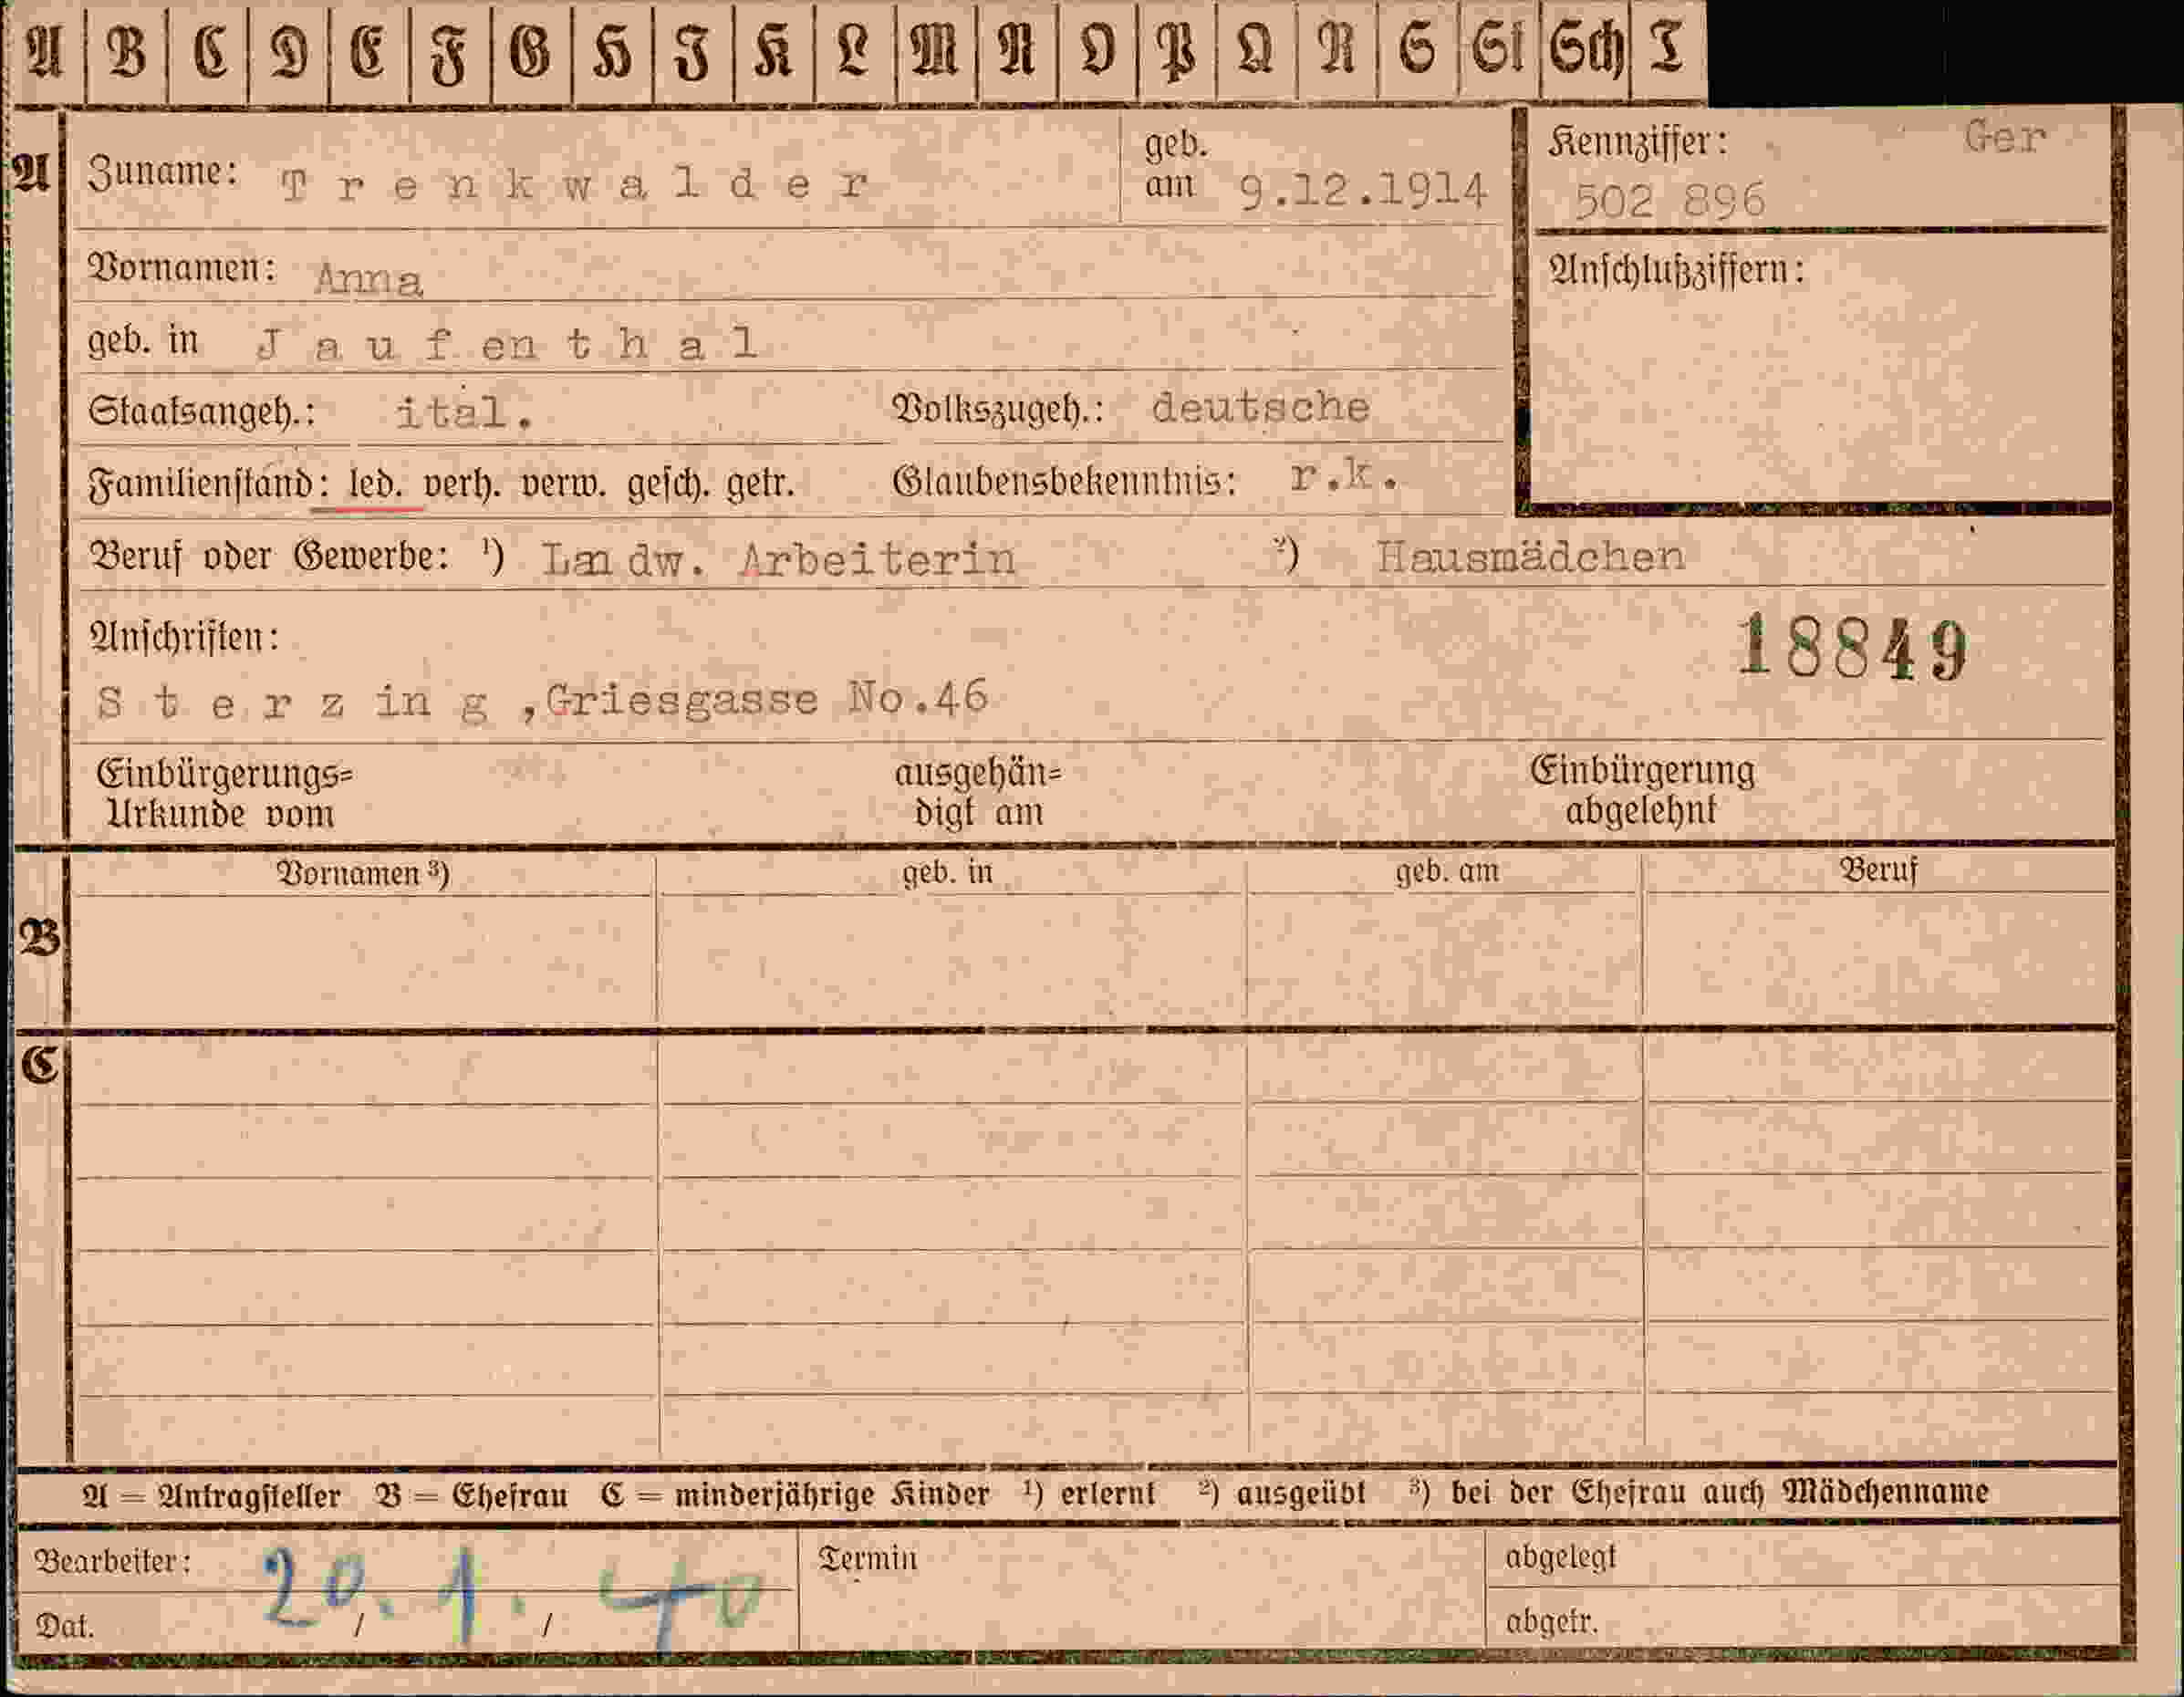 A B C D E F G H J K L M N O P Q R S St Sch T
A Zuname: Trenkwalder geb. am 9.12.1914 Kennziffer: Ger
502 896
Vornamen: Anna
Anschlußziffern:
geb. in Jaufenthal
Staatsangeh.: ital. Volkszugeh.: deutsche
Familienstand: led. verh. verw. gesch. getr. Glaubensbekenntnis: r.k.
Beruf oder Gewerbe: ¹) Landw. Arbeiterin ²) Hausmädchen
Anschriften:
18849
Sterzing, Griesgasse No.46
Einbürgerungs= ausgehän= Einbürgerung
Urkunde vom digt am abgelehnt
Vornamen ³) geb. in geb. am Beruf
B
C
A = Antragsteller B = Ehefrau C = minderjährige Kinder ¹) erlernt ²) ausgeübt ³) bei der Ehefrau auch Mädchenname
Bearbeiter: Termin abgelegt
20. 1. 40
Dat. / / abgetr.